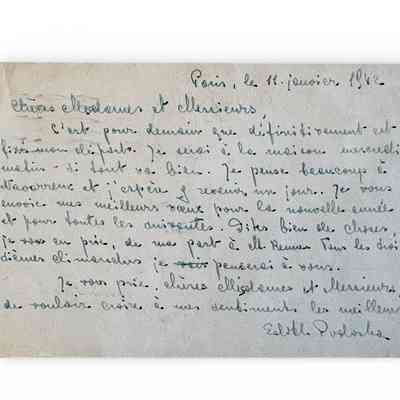 Paris, le 11 janvier 1942
Chères Mesdames et Messieurs,
C'est pour demain que définitivement est
fixé mon départ. Je serai à la maison mercredi
matin si tout va bien. Je pense beaucoup à
Navarrenx et j'espère y revenir un jour. Je vous
envoie mes meilleurs vœux pour la nouvelle année
et pour toutes les suivantes. Dites bien de choses,
je vous en prie, de ma part à M. Tous les troi
sièmes dimanches je penserai à vous.
Je vous prie, chères Mesdames et Messieurs,
de vouloir croire à mes sentiments les meilleurs
Edith